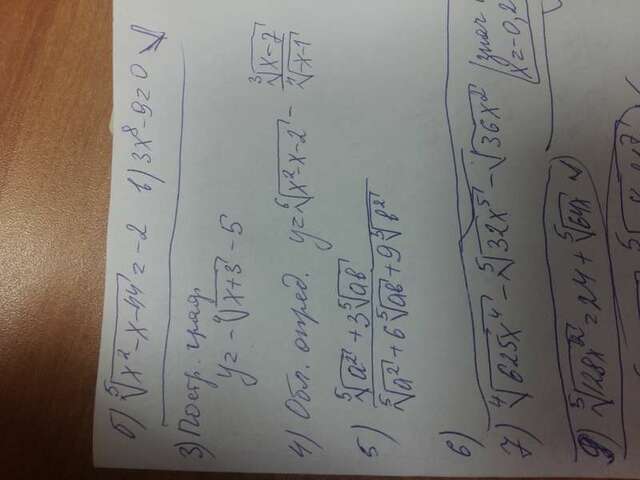 б) ⁵√(x²-x-44) = -2 в) 3x⁸-9=0
3) Постр. граф.
y= -⁴√(x+3) - 5
4) Обл. опред. y=⁶√(x²-x-2) - ³√(x-7)/⁴√(-x-1)
5) (⁵√a² + 3⁵√ab)/(⁵√a² + 6⁵√ab + 9⁵√b²)
6)
7) ⁴√(625x⁴) - ⁵√(32x⁵) - √(36x²)
x=-0,2
9) ⁵√(128x²) = 24 + ⁵√(64x)